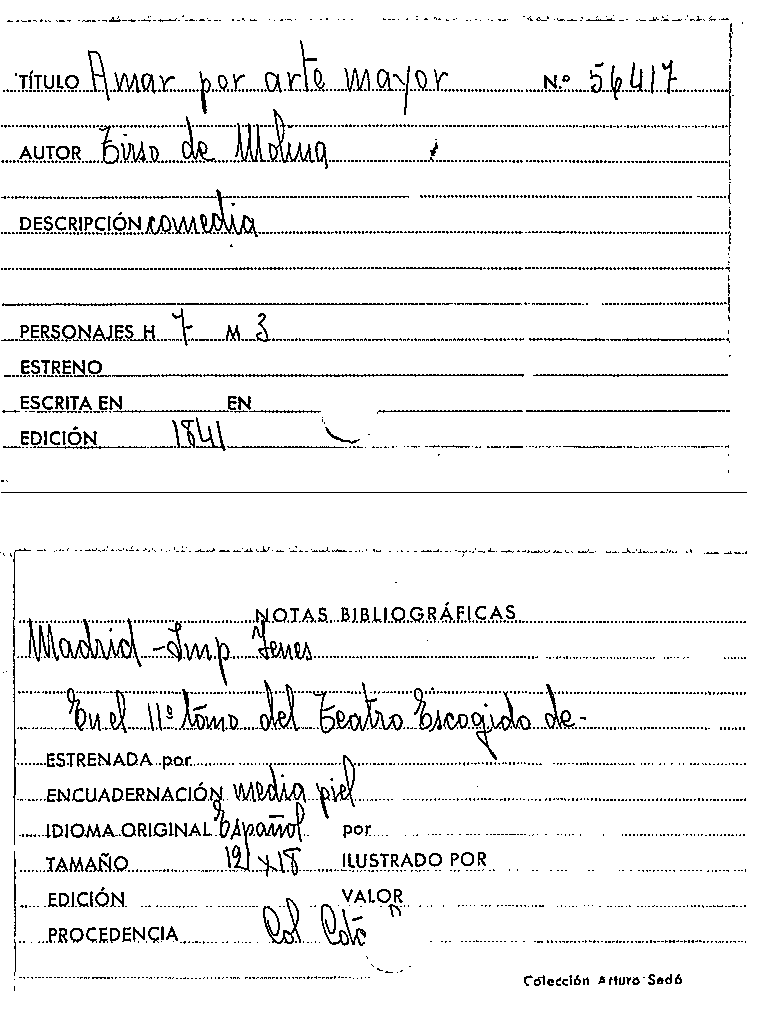 TÍTULO Amar por arte mayor N.º 56417
AUTOR Tirso de Molina
DESCRIPCIÓN comedia
PERSONAJES H 7 M 3
ESTRENO
ESCRITA EN EN
EDICIÓN 1841
NOTAS BIBLIOGRÁFICAS
Madrid - Imp Yenes
En el 11º tomo del Teatro Escogido de-
ESTRENADA por
ENCUADERNACIÓN media piel
IDIOMA ORIGINAL Español por
TAMAÑO 12 x 18 ILUSTRADO POR
EDICIÓN VALOR
PROCEDENCIA Col Coto
Colección Arturo Sedó